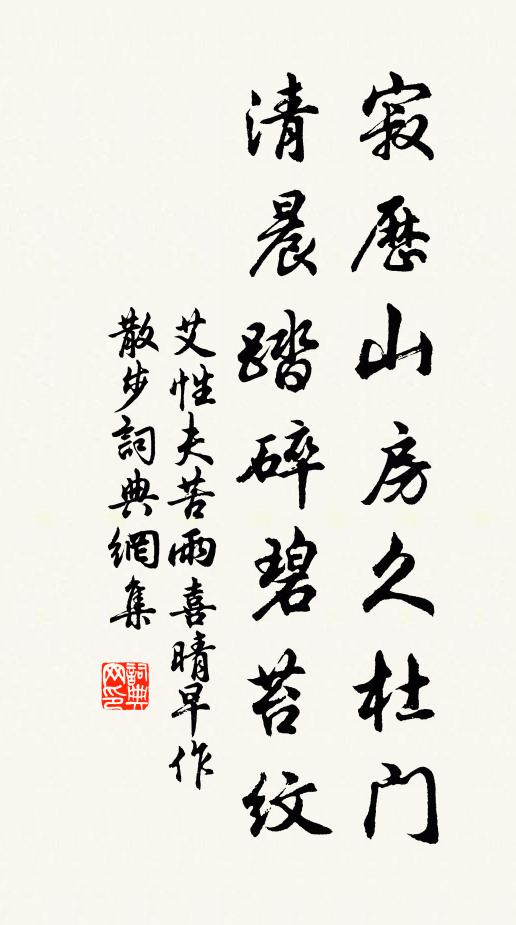 寂歷山房久杜門
清晨踏碎碧苔紋
艾性夫苦雨喜晴早作
散步詞典網集
詞典网印